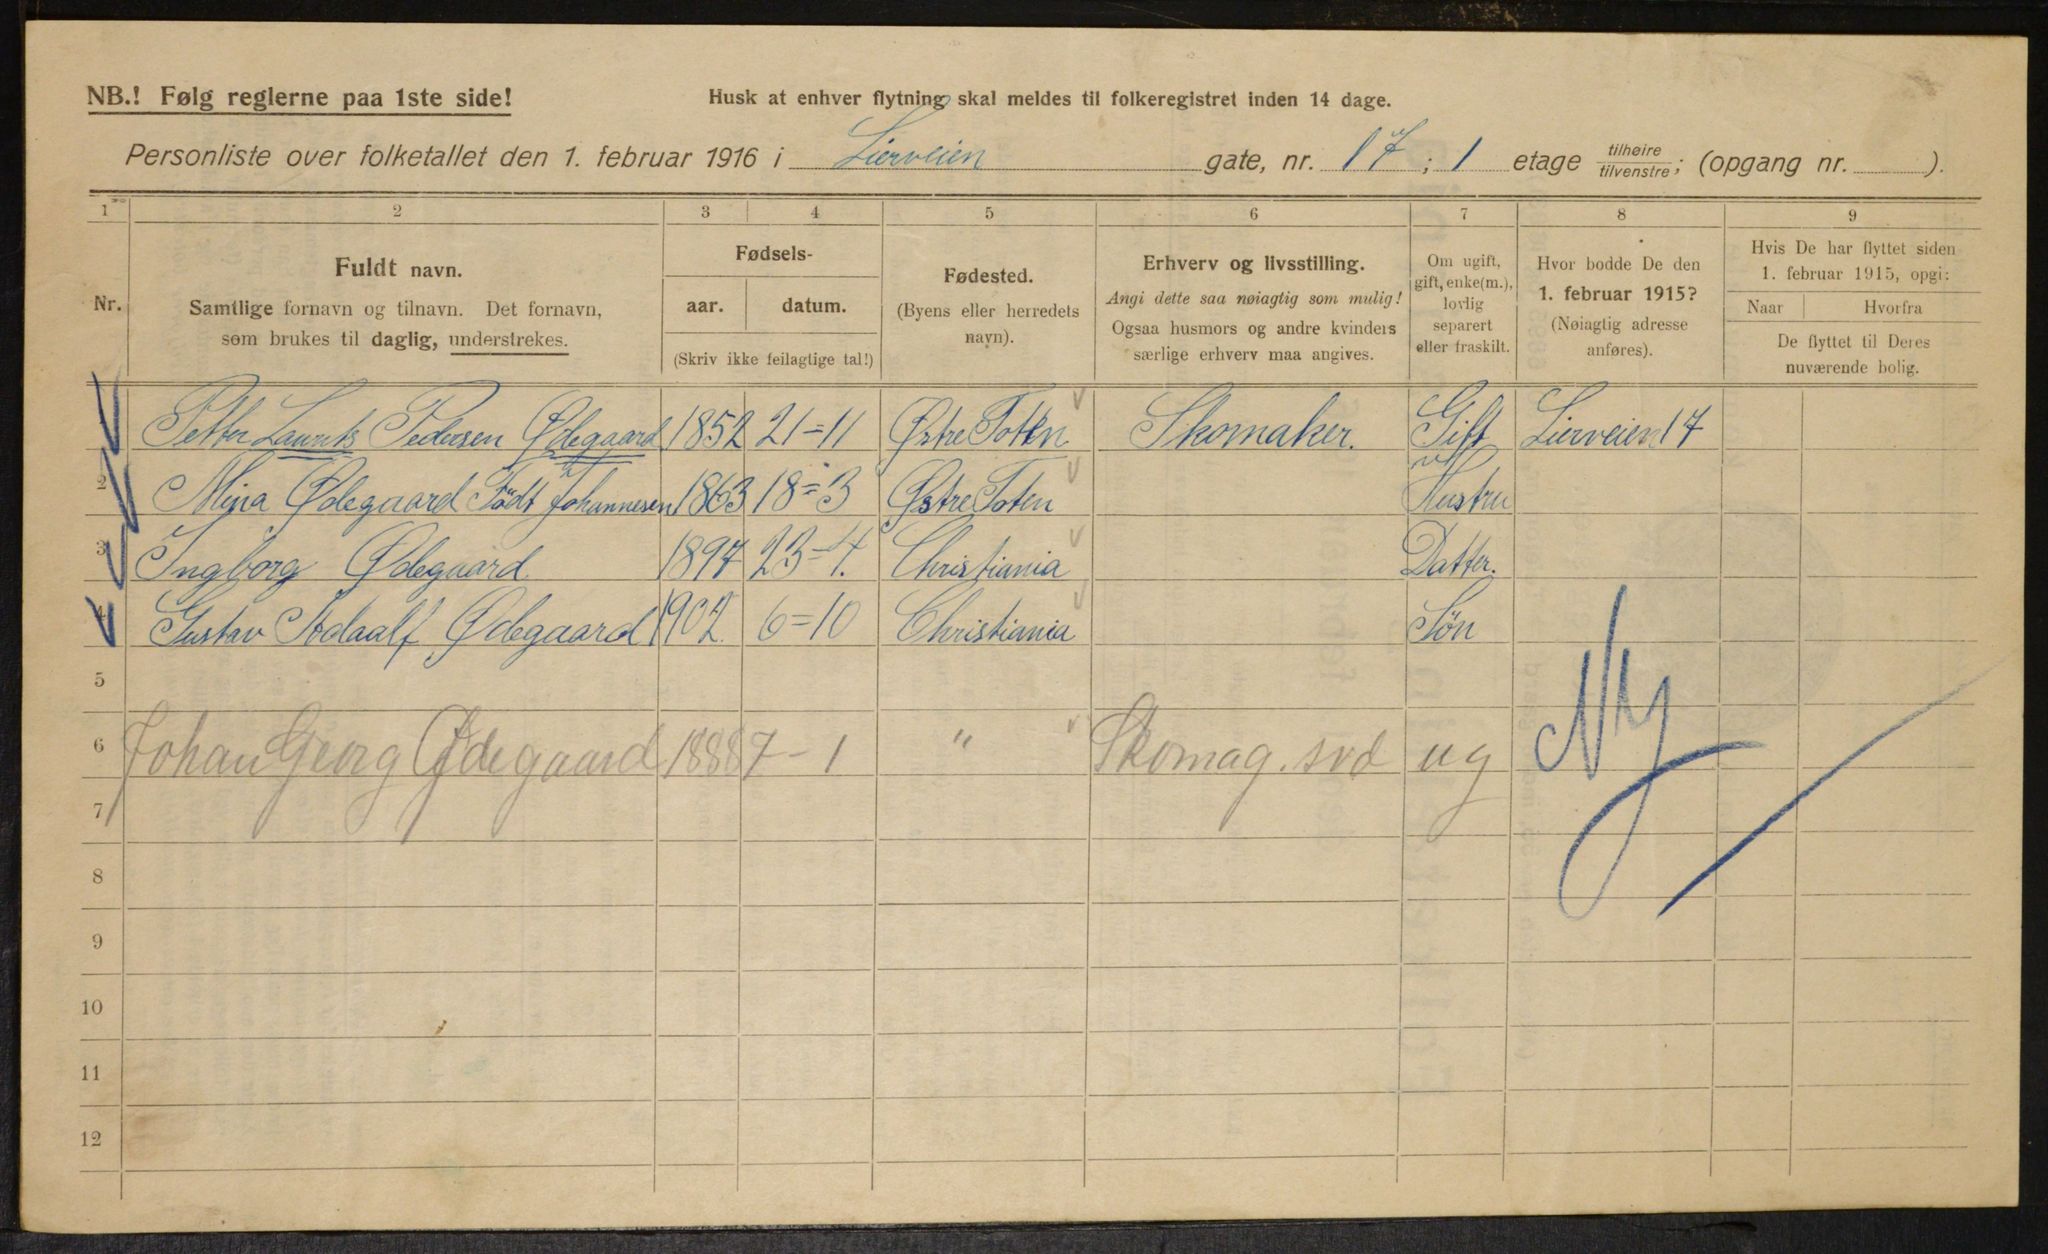 NB.! Følg reglerne paa 1ste side!
Husk at enhver flytning skal meldes til folkeregistret inden 14 dage.
Personliste over folketallet den 1. februar 1916 i Lierveien gate, nr. 17; 1 etage tilhøire tilvenstre; (opgang nr. ).
1 2 3 4 5 6 7 8 9
Nr.
Fuldt navn.
Samtlige fornavn og tilnavn. Det fornavn,
som brukes til daglig, understrekes.
Fødsels-
aar. datum.
(Skriv ikke feilagtige tal!)
Fødested.
(Byens eller herredets
navn).
Erhverv og livsstilling.
Angi dette saa nøiagtig som mulig!
Ogsaa husmors og andre kvinders
særlige erhverv maa angives.
Om ugift,
gift, enke(m.),
lovlig
separert
eller fraskilt.
Hvor bodde De den
1. februar 1915?
(Nøiagtig adresse
anføres).
Hvis De har flyttet siden
1. februar 1915, opgi:
Naar Hvorfra
De flyttet til Deres
nuværende bolig.
Petter Laurits Pedersen Ødegaard 1852 21=11 Østre Toten Skomaker. Gift Lierveien 17
2 Mina Ødegaard Født Johannesen 1863 18=3 Østre Toten Hustru
3 Ingborg Ødegaard 1897 23=4. Christiania Datter.
4 Gustav Adaalf Ødegaard 1902 6=10 Christiania Søn
5
6 Johan Georg Ødegaard 1888 7-1 " Skomag. svd ug Ny
7
8
9
10
11
12